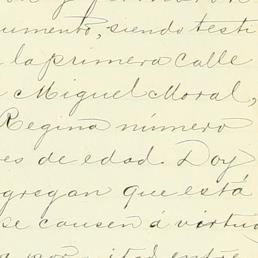 umento, siendo testi
la primera calle
Miguel Moral,
Regina número
es de edad. Doy
gregan que está
se causen á virtud